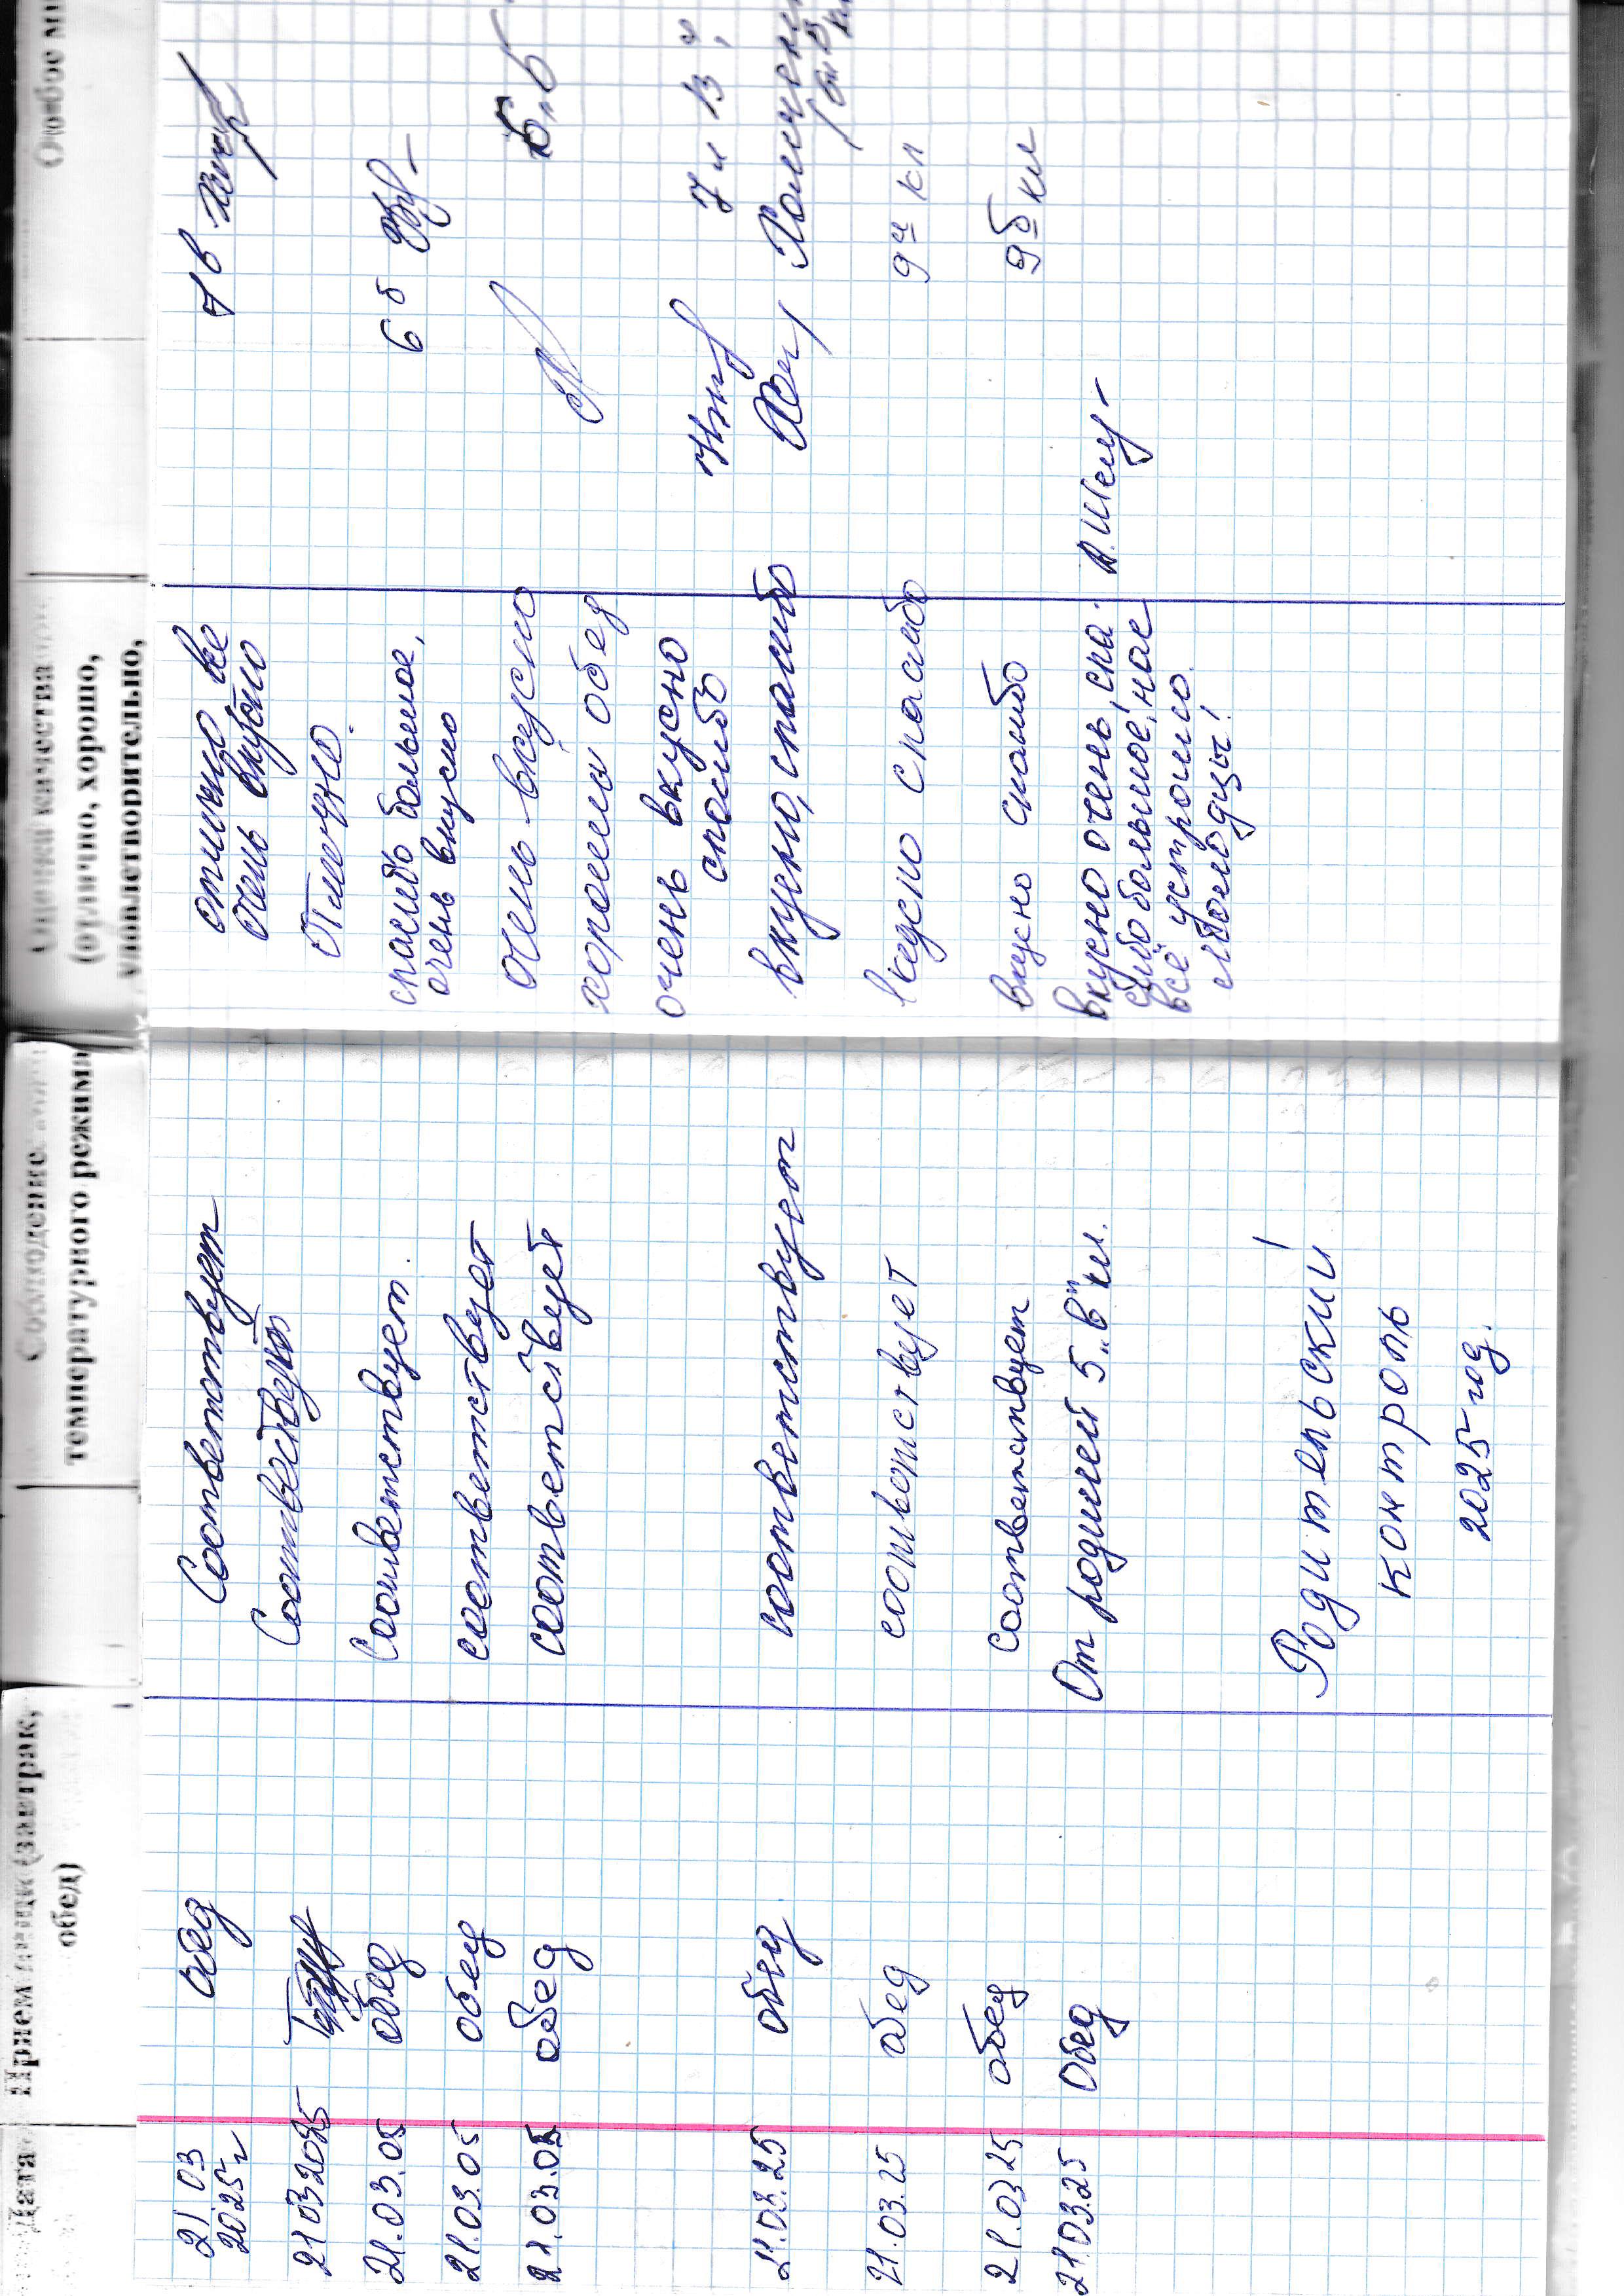 Дата
Прием пищи (завтрак, обед)
Соблюдение температурного режима
Оценка качества (отлично, хорошо, удовлетворительно,
Особое
21.03 2025г обед Соответствует отлично все очень вкусно 7в
21.03.2025 Соответствует Отлично.
21.03.05 обед Соответствует. спасибо большое, очень вкусно 6 б
21.03.05 обед соответствует очень вкусно 5„Б
21.03.05 обед соответствует хороший обед
очень вкусно спасибо 7 и 13
21.03.25 обед соответствует вкусно, спасибо
21.03.25 обед соответствует вкусно спасибо 9 кл
21.03 25 обед соответствует вкусно спасибо 9б кл
21.03.25 Обед От родителей 5„в" кл. вкусно очень, спа-
сибо большое, нас
всё устроило.
Молодцы!
Родительский
контроль
2025 год.